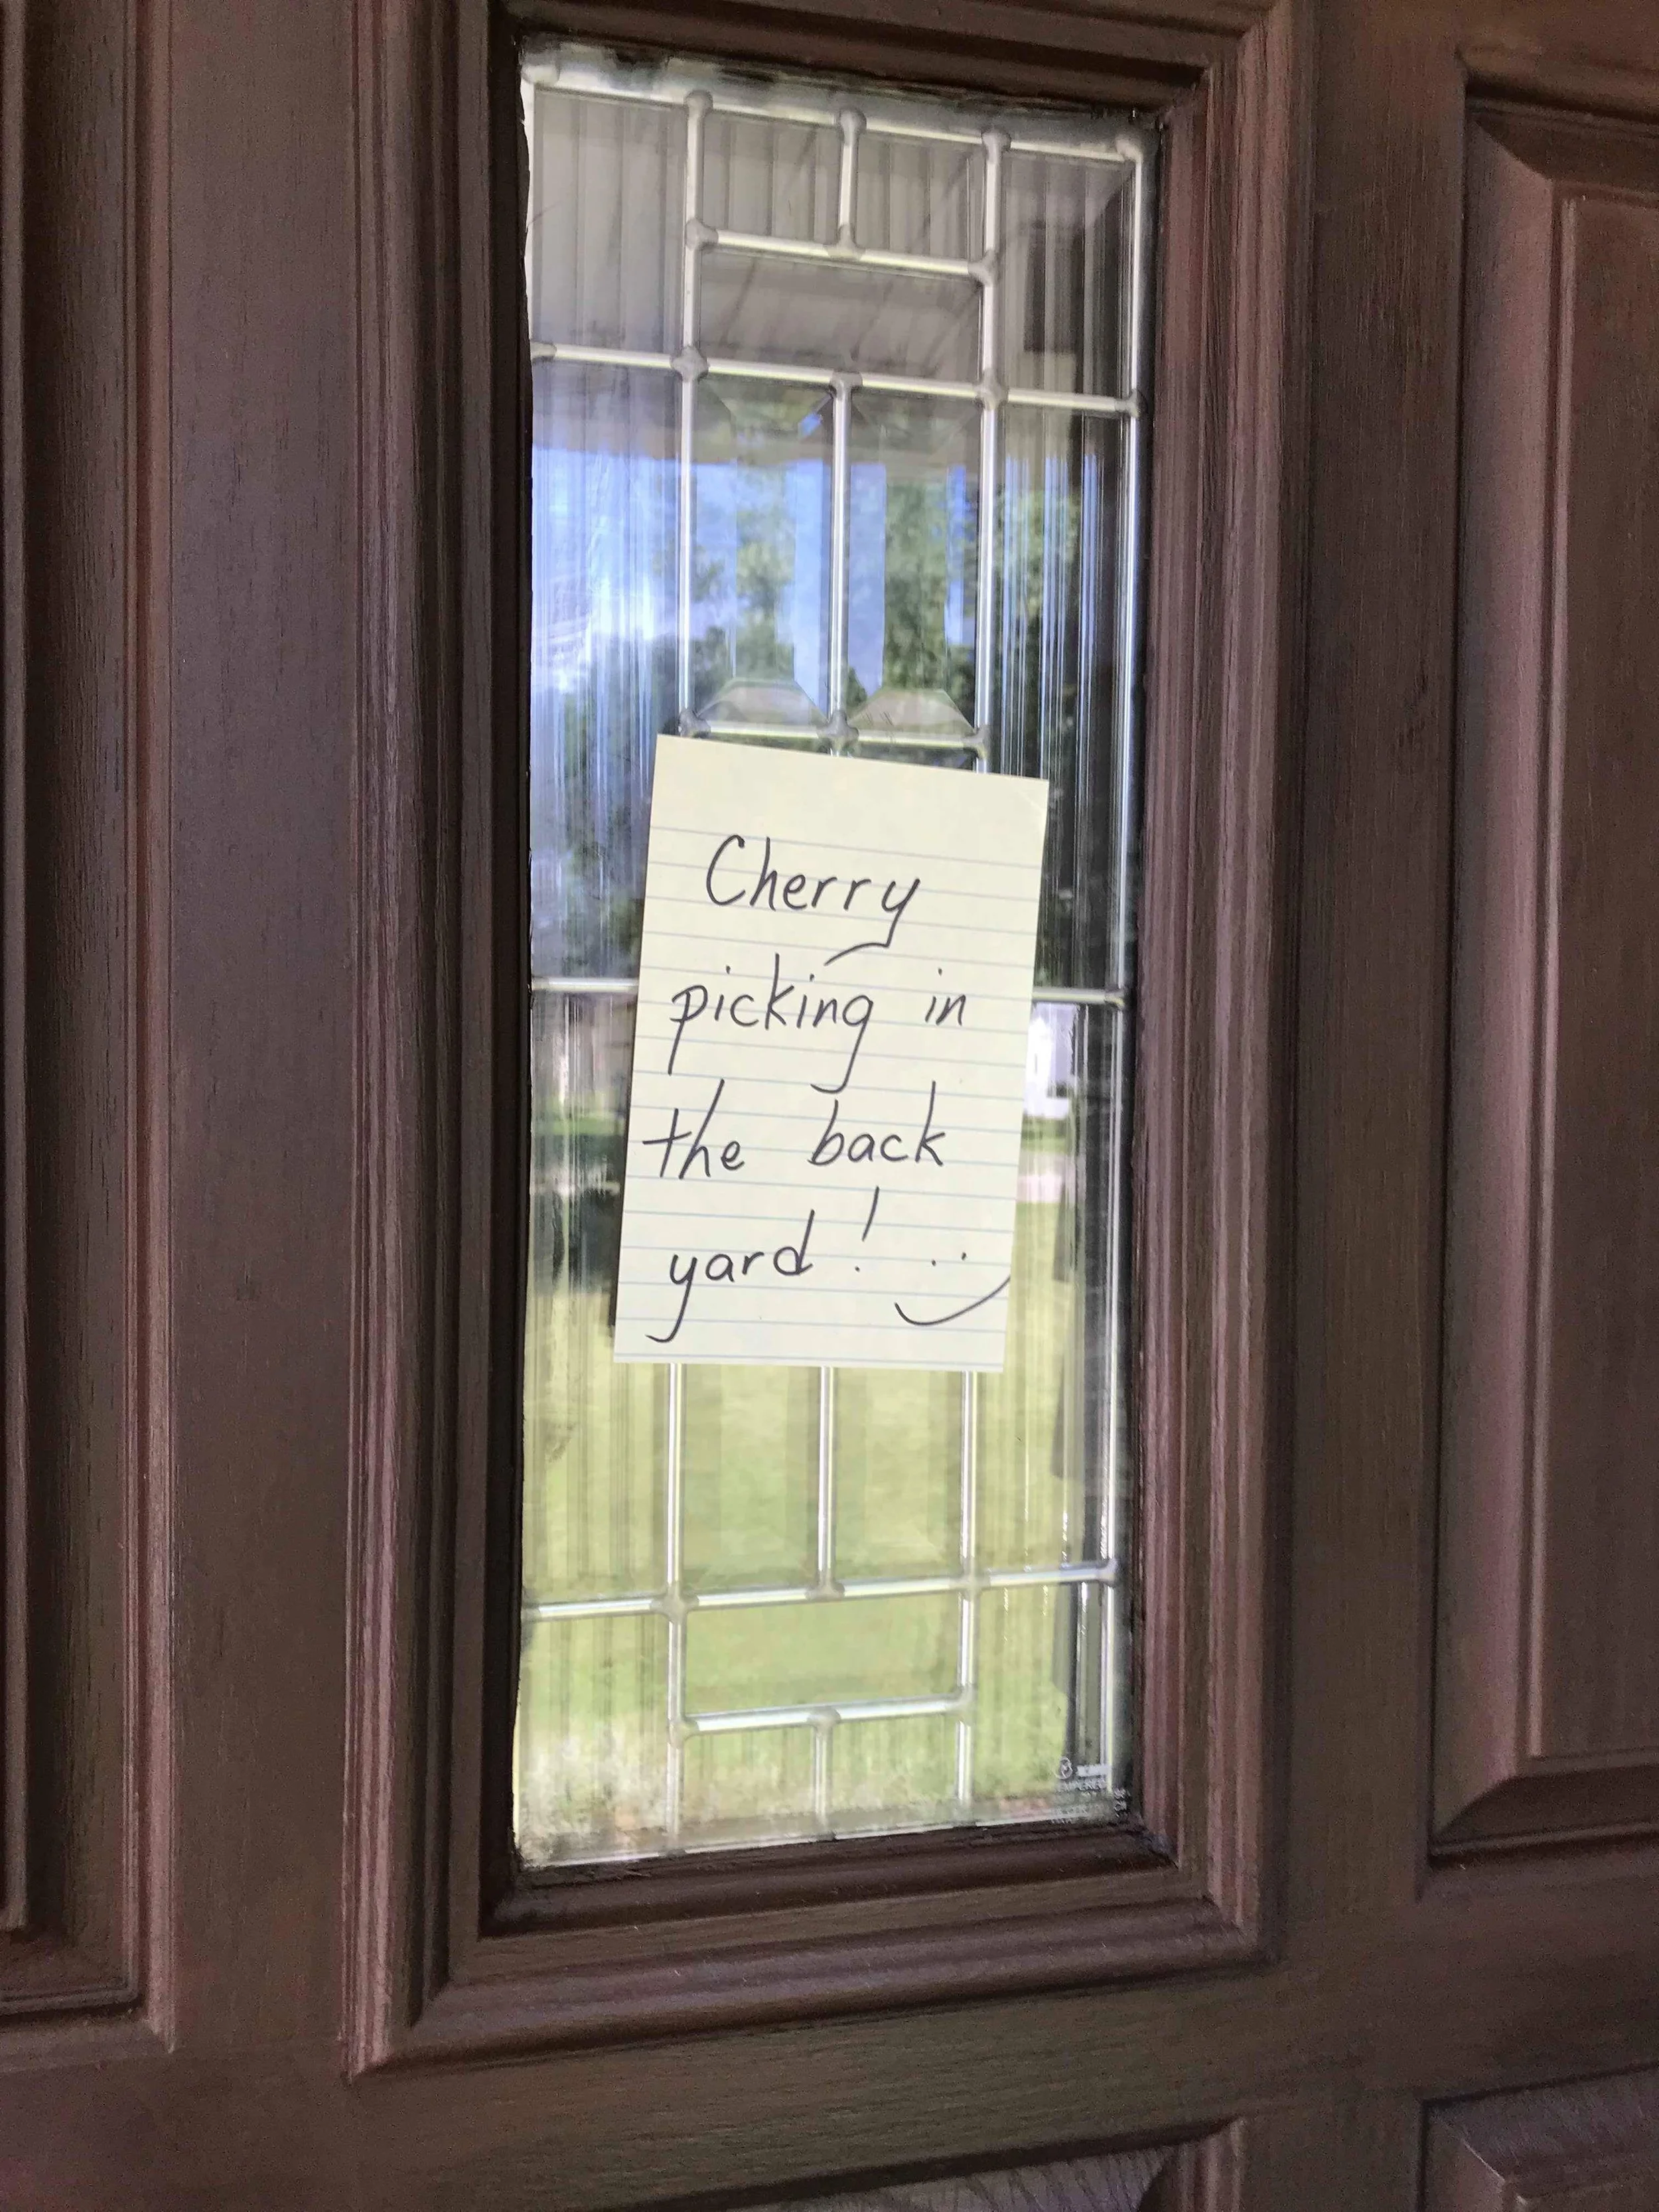 Cherry
picking in
the back
yard! :)